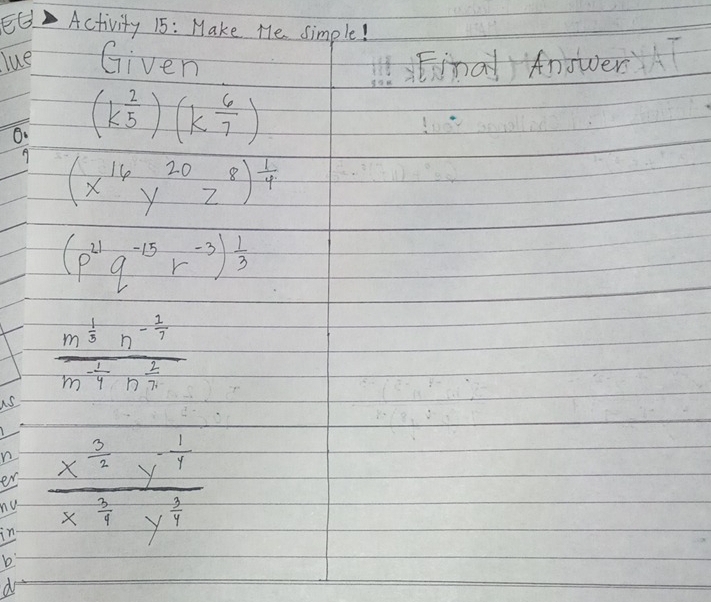 ➤ Activity 15: Make Me Simple!
Given Final Answer
(k^{2/5}) (k^{6/7})
(x^{16} y^{20} z^{8})^{1/4}
(p^{21} q^{-15} r^{-3})^{1/3}
m^{1/3} n^{-2/7}
m^{-1/4} n^{2/7}
x^{3/2} y^{-1/4}
x^{3/4} y^{3/4}